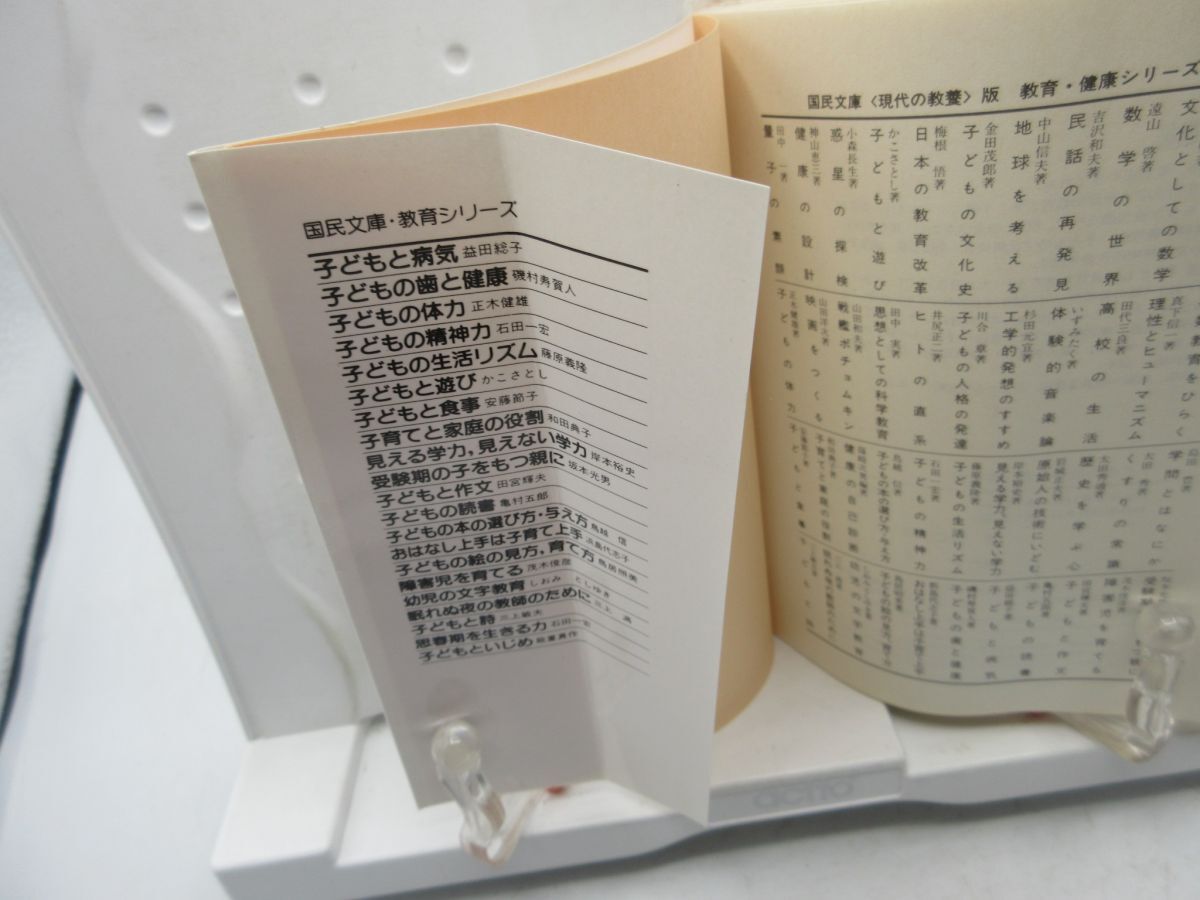 国民文庫・教育シリーズ
子どもと病気 益田総子
子どもの歯と健康 磯村寿賀人
子どもの体力 正木健雄
子どもの精神力 石田一宏
子どもの生活リズム 藤原義隆
子どもと遊び かこさとし
子どもと食事 安藤節子
子育てと家庭の役割 和田典子
見える学力,見えない学力 岸本裕史
受験期の子をもつ親に 坂本光男
子どもと作文 田宮輝夫
子どもの読書 亀村五郎
子どもの本の選び方・与え方 鳥越 信
おはなし上手は子育て上手 浜島代志子
子どもの絵の見方,育て方 鳥居昭美
障害児を育てる 茂木俊彦
幼児の文字教育 しおみ としゆき
眠れぬ夜の教師のために 三上 満
子どもと詩 三上敏夫
思春期を生きる力 石田一宏
子どもといじめ
国民文庫〈現代の教養〉版 教育・健康シリーズ
文化としての数学
遠山 啓著
数学の世界
吉沢和夫著
民話の再発見
中山信夫著
地球を考える
金田茂郎著
子どもの文化史
梅根 悟著
日本の教育改革
かこさとし著
子どもと遊び
小森長生著
惑星の探検
神山恵三著
健康の設計
田中 一著
量子の素顔
教育をひらく
真下信一著
理性とヒューマニズム
田代三良著
高校の生活
いずみたく著
体験的音楽論
杉田元宜著
工学的発想のすすめ
川合 章著
子どもの人格の発達
井尻正二著
ヒトの直系
田中 実著
思想としての科学教育
山田和夫著
戦艦ポチョムキン
山田洋次著
映画をつくる
正木健雄著
子どもの体力
学問とはなにか
くすりの常識
太田秀通著
歴史を学ぶ心
岩城正夫著
原始人の技術にいどむ
岸本裕史著
見える学力,見えない学力
藤原義隆著
子どもの生活リズム
石田一宏著
子どもの精神力
鳥越 信著
子どもの本の選び方・与え方
健康の自己診断
和田典子著
子育てと家庭の役割
安藤節子著
子どもと食事
障害児を育てる
田宮輝夫著
子どもと作文
亀村五郎著
子どもの読書
益田総子著
子どもと病気
磯村寿賀人著
子どもの歯と健康
浜島代志子著
おはなし上手は子育て上手
鳥居昭美著
子どもの絵の見方,育て方
幼児の文字教育